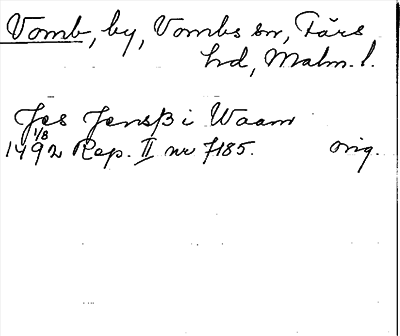 Vomb, by, Vombs sn, Färs
hd, Malm. l.
Jes Jensß i Waam
1/8
1492 Rep. II nr 7185. orig.